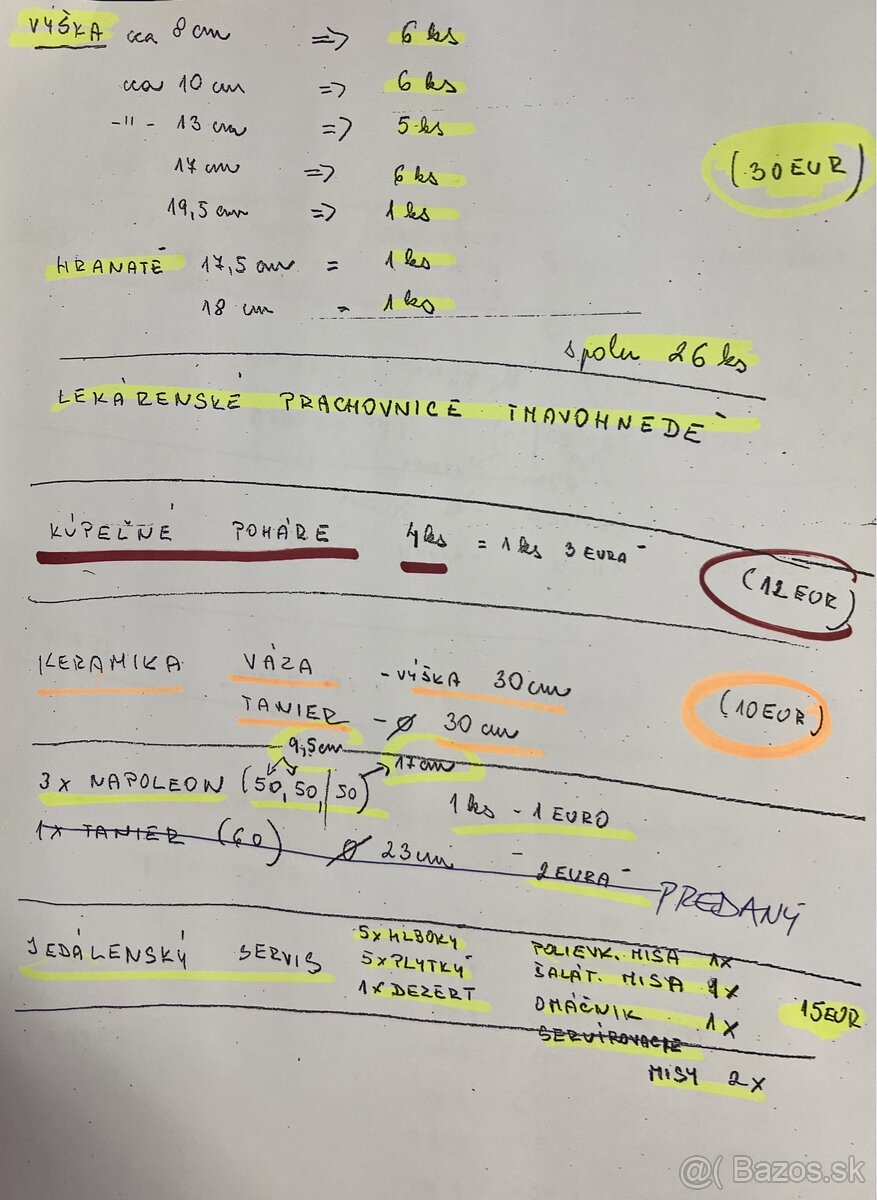 VÝŠKA cca 8 cm => 6 ks
cca 10 cm => 6 ks
-"- 13 cm => 5 ks
17 cm => 6 ks
19,5 cm => 1 ks
(30 EUR)
HRANATÉ 17,5 cm = 1 ks
18 cm = 1 ks
spolu 26 ks
LEKÁRENSKÉ PRACHOVNICE TMAVOHNEDÉ
KÚPEĽNÉ POHÁRE 4 ks = 1 ks 3 EURÁ
(12 EUR)
KERAMIKA VÁZA - VÝŠKA 30 cm
TANIER - ø 30 cm
(10 EUR)
9,5cm
17cm
3x NAPOLEON (50, 50, / 50) 1 ks - 1 EURO
1x TANIER (60) ø 23 cm - 2 EURÁ PREDANÝ
JEDÁLENSKÝ SERVIS
5x HLBOKÝ
5x PLYTKÝ
1x DEZERT
POLIEVK. MISA 1x
ŠALÁT. MISA 1x
OMÁČNIK 1x
SERVÍROVACIE
MISY 2x
15 EUR
@( Bazos.sk